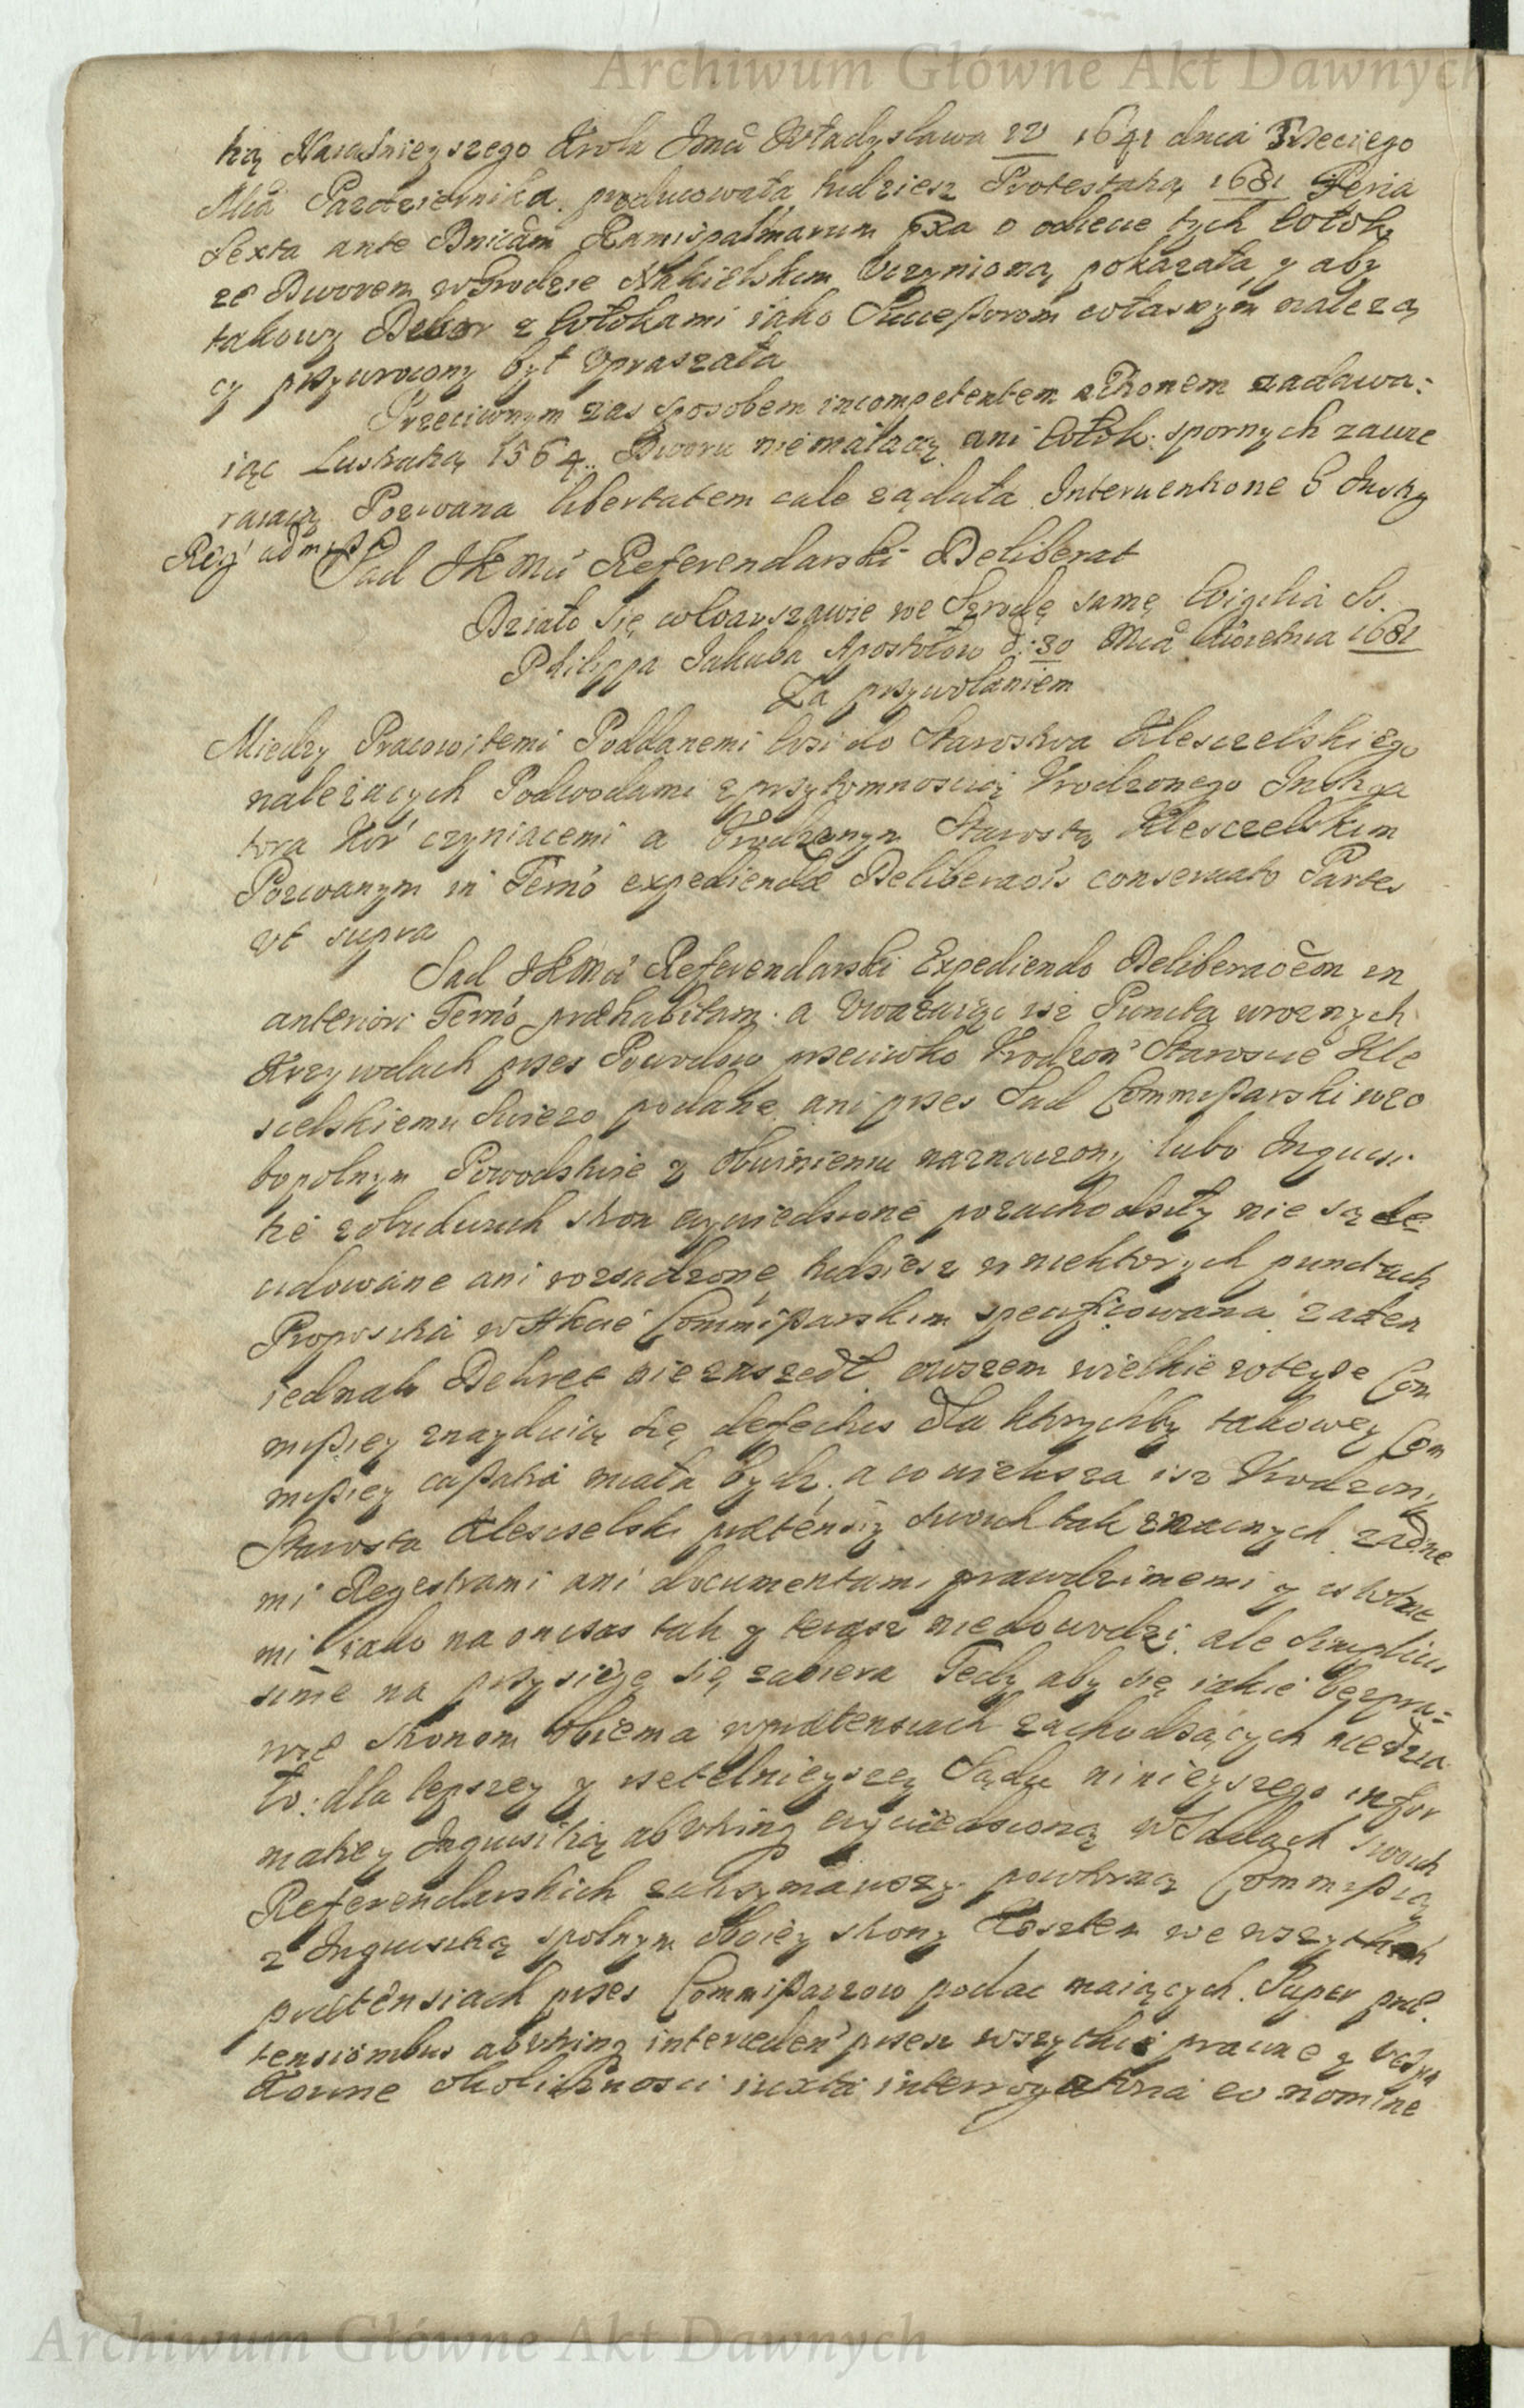 Archiwum Główne Akt Dawnych
ką Naiaśnieyszego Krola Jmci Władysława IV 1641 dnia Trzeciego
Mca Pazdziernika producowała tudziesz Protestatią 1681 Feria
Sexta ante Dnicam Ramispalmarum pxa o odiecie tych włok
ze Dworem w Grodzie Nakielskim vczynioną pokazała y aby
takowy Dwor z włokami iako Successorom własnym należą
cy przywrocony był vpraszała
Przeciwnym zas sposobem incompetentem Actionem zadawa:
iąc Lustratią 1564. Dworu niemaiącą ani włok spornych zawie
raiącą Pozwana libertatem cale żądała Interuentione G Instig
Reg admissa
Sad JKMci Referendarski Deliberat
Działo się w Warszawie we Szrodę samę Wigilia SS.
Philippa Jakuba Apostołow d: 30 Mca Kwietnia 1681
Za przywołaniem
Miedzy Pracowitemi Poddanemi wsi do Starostwa Klesczelskiego
należących Powodami z przytomnoscią Vrodzonego Instiga
tora Kor czyniacemi a Vrodzonym Starostą Klesczelskim
Pozwanym in Termo expediendæ Deliberaois conseruato Partes
vt supra
Sad JKMci Referendarski Expediendo Deliberaoem in
anteriori Termo præhabitam. a Vważaiąc isz Puncta wroznych
Krzywdach przes Powodow przeciwko Vrodzon Staroscie Kle
scelskiemu swiezo podane ani przes Sad Commissarski wzo
bopolnym Powodstwie y obwinieniu naznaczony lubo Inquisi
tie zobudwuch stron wywiedzione pozachodziły nie są de
cidowane ani rozsadzone tudziesz w niektorych punctach
Propositia w Akcie Commissarskim specificowana zaden
iednak Dekret nie zaszedł, owszem wielkie w teyze Com
missiey znayduią się defectus dla ktorychby takowey Com
missiey cassatia miała bydz, a co wieksza isz Vrodzony
Starosta Klescselski prætensiy swoich tak znacznych zadne
mi Regestrami ani documentami prawdziwemi y istotne
mi iako na onczas tak y terasz nie dowodzi, ale simplicis
sime na przysięgę się zabiera Tedy aby się iakie bezpra=
wie stronom obiema wprætensiach zachodsących nie dzia
ło: dla lepszey y rzetelnieyszey Sądu ninieyszego infor
matiey Inquisitią abvtrinq wywiedzioną w Sadach swoich
Referendarskich zatrzymawszy. powtorzą Commissią
z Inquisitią spolnym oboiey strony Kosztem we wszytkich
prætensiach przes Commissarzow podac maiących. Super præ
tensionibus abvtrinq interceden przesz wszytkie prawne y
okolicznosci iuxta interrogatoria eo nomine
Archiwum Główne Akt Dawnych